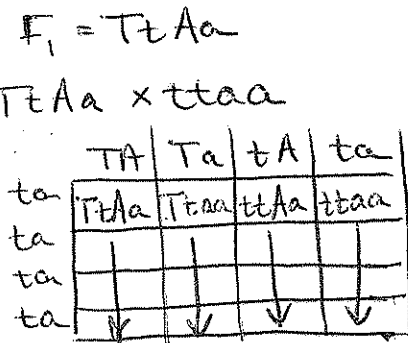 F₁ = TtAa
TtAa × ttaa
TA Ta tA ta
ta TtAa Ttaa ttAa ttaa
ta
ta
ta